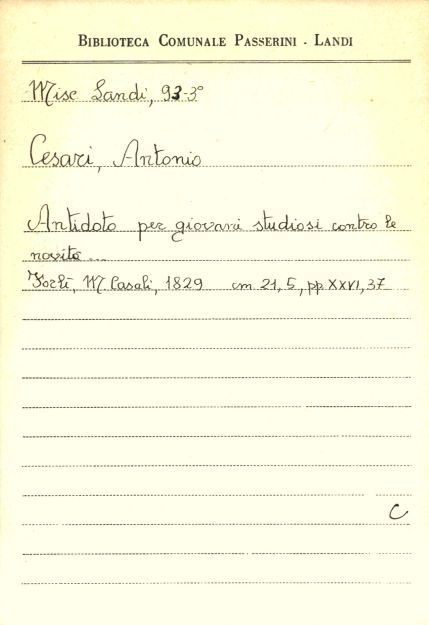 BIBLIOTECA COMUNALE PASSERINI - LANDI
Misc Landi, 93-3°
Cesari, Antonio
Antidoto per giovani studiosi contro le
novità ...
Forlì, M. Casali, 1829 cm 21,5, pp. XXVI, 37
C